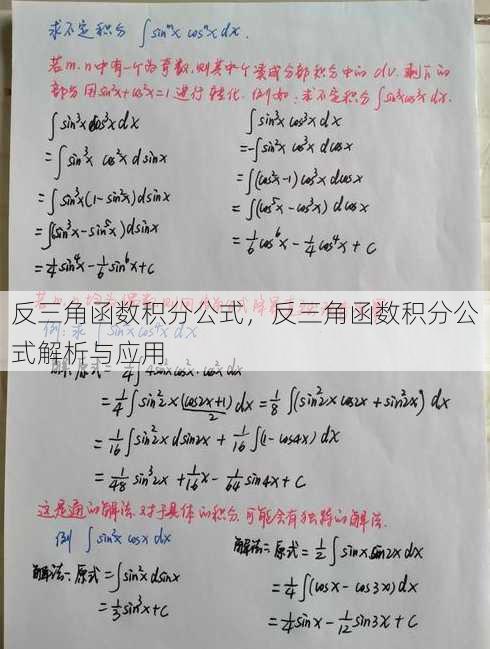 求不定积分 ∫sinᵐx cosⁿx dx.
若m.n中有一个为奇数,则其中个凑成分部积分中的 dv. 剩下的
部分用sin²x+cos²x=1进行转化. 例如:求不定积分∫sin³x cos³x dx.
∫sin³x cos³x dx
=∫sin³x cos²x dsinx
=∫sin³x(1-sin²x)dsinx
=∫(sin³x-sin⁵x)dsinx
=1/4 sin⁴x-1/6 sin⁶x+C
∫sin³x cos³x dx
=-∫sin²x cos³x dcosx
=∫(cos²x-1)cos³x dcosx
=∫(cos⁵x-cos³x)dcosx
=1/6 cos⁶x-1/4 cos⁴x+C
反三角函数积分公式，反三角函数积分公
式解析与应用
解:原式=1/4∫4sin²x cos²x·cos²x dx
=1/4∫sin²2x (cos2x+1)/2 dx=1/8∫(sin²2x cos2x+sin²2x)dx
=1/16∫sin²2x dsin2x+1/16∫(1-cos4x)dx
=1/48 sin³2x+1/16 x-1/64 sin4x+C
这是通的解法.对于具体的积分.可能会有独特的解法.
例 ∫sin²x cosx dx
解法一:原式=∫sin²x dsinx
=1/3 sin³x+C
解法二:原式=1/2∫sinx sin2x dx
=1/4∫(cosx-cos3x)dx
=1/4 sinx-1/12 sin3x+C